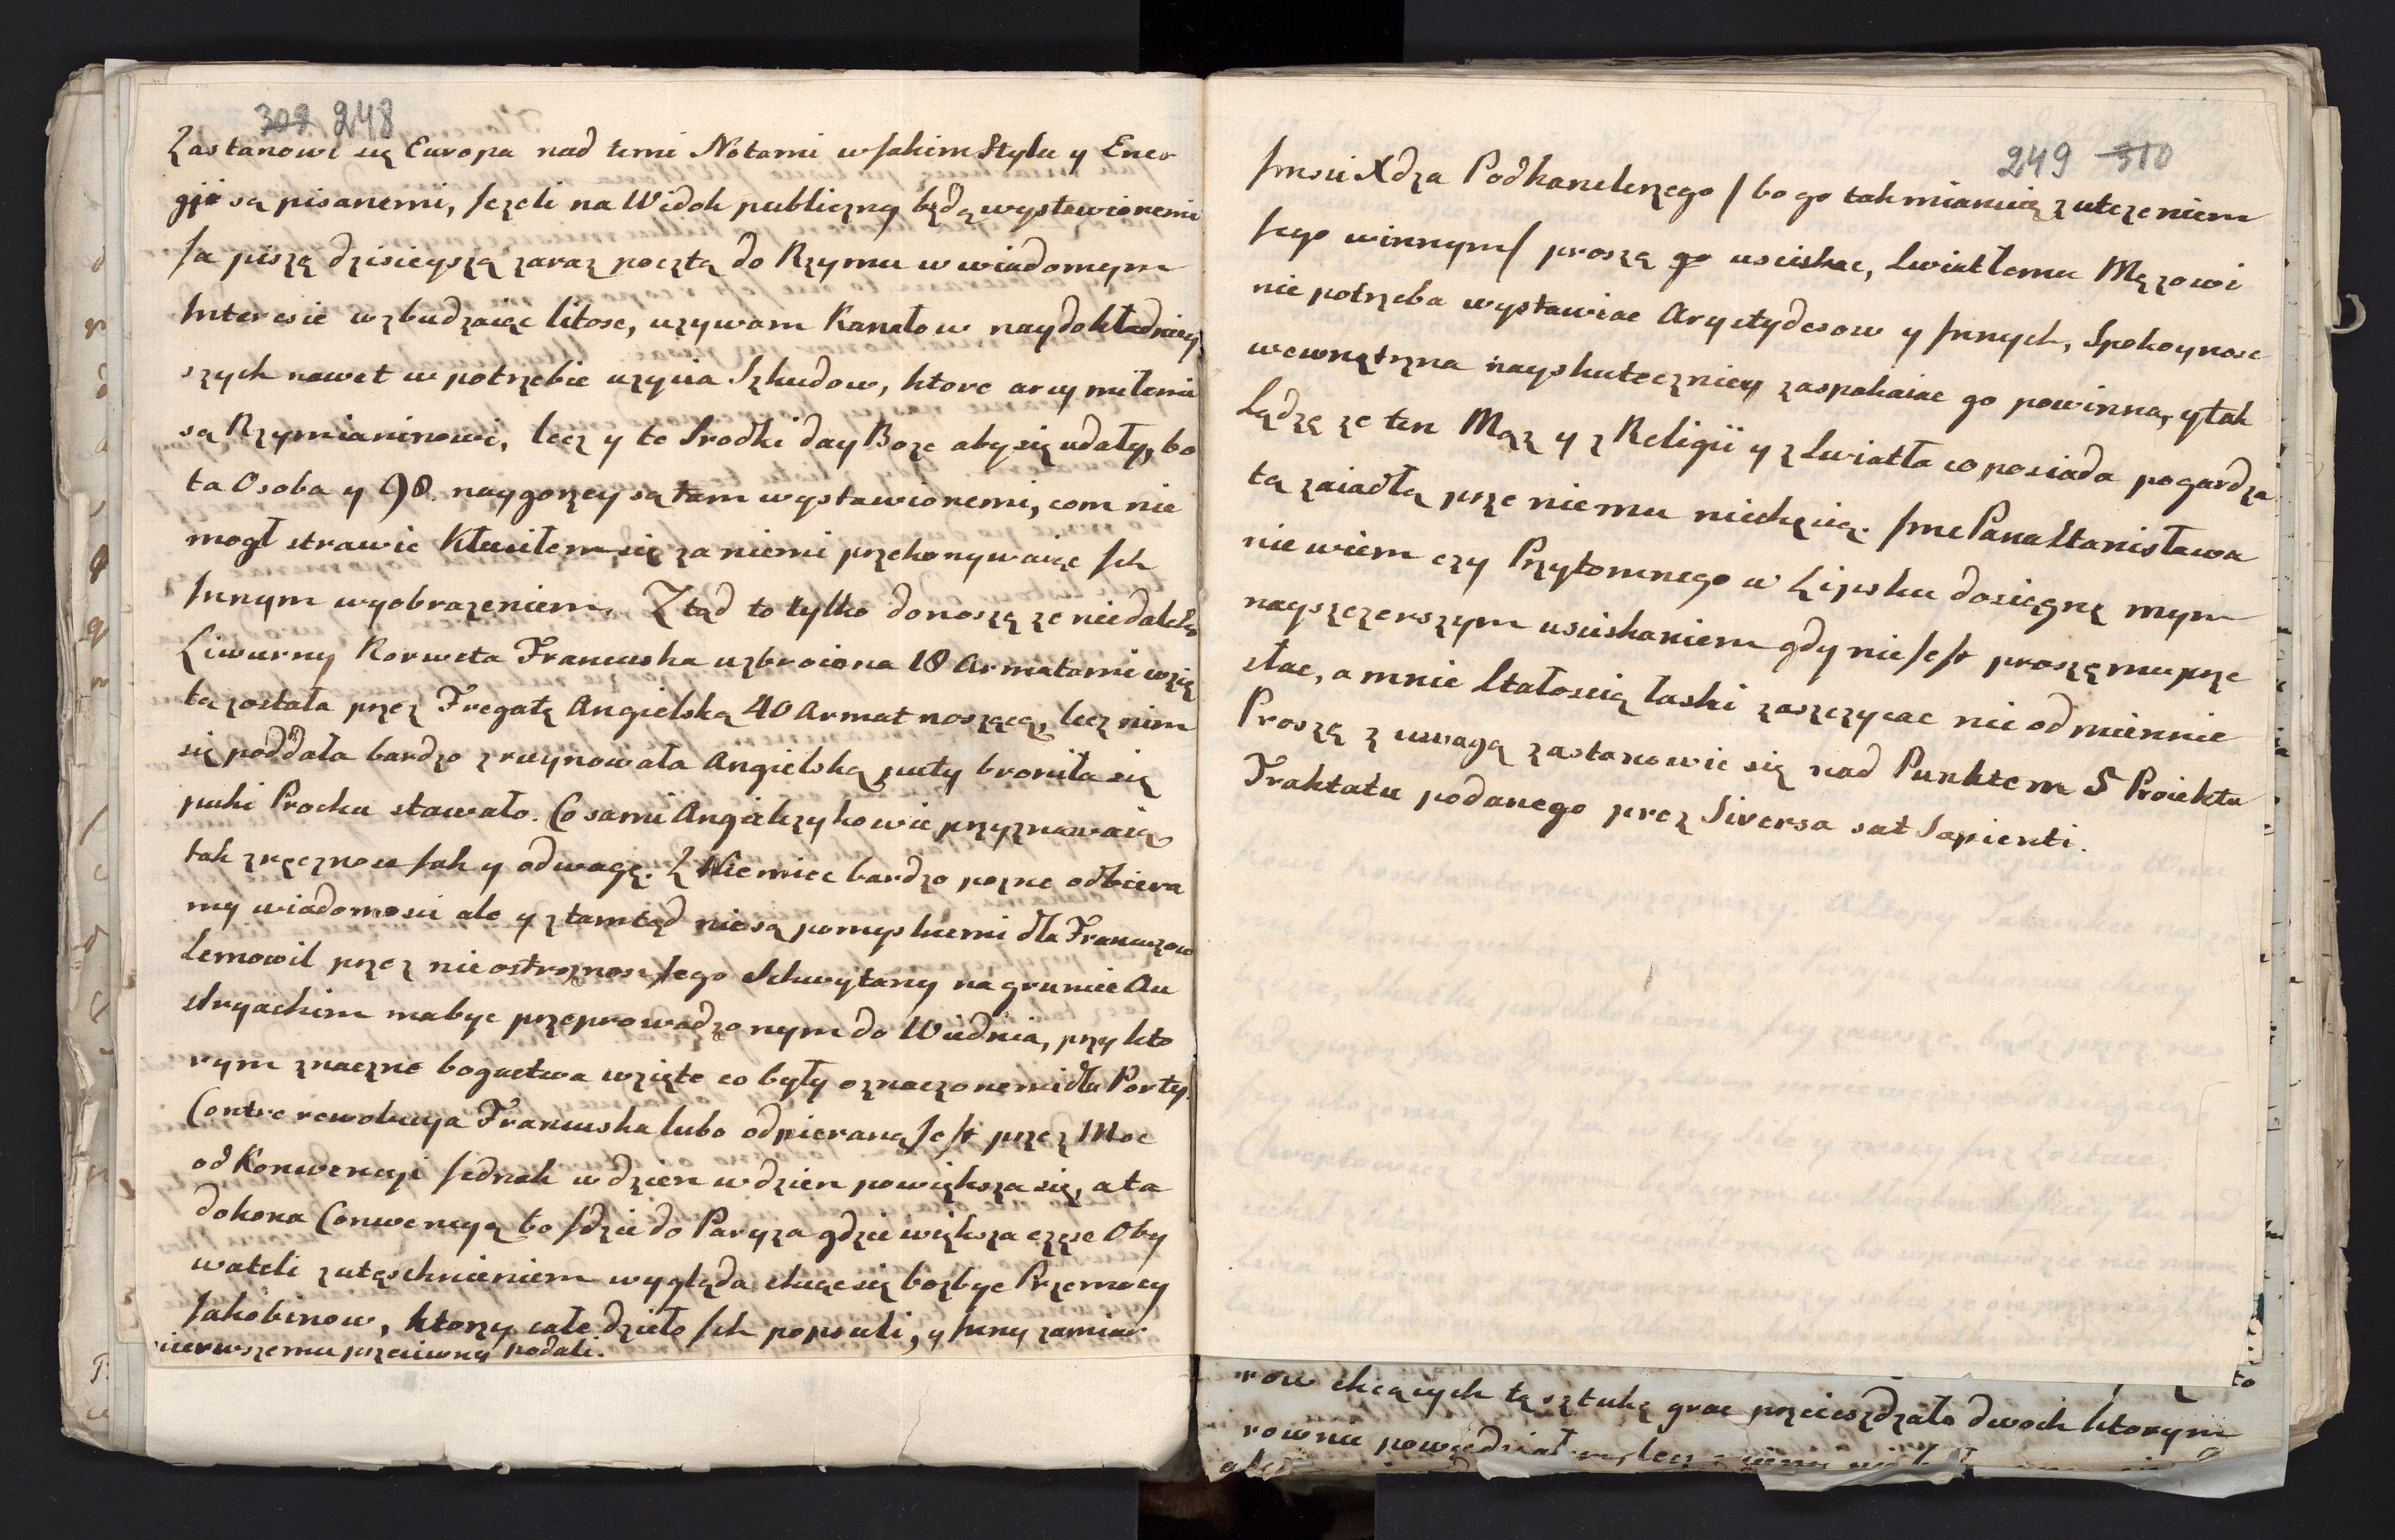 309 248
Zastanowi się Europa nad temi Notami w Jakim Stylu y Ener
gji są pisanemi, Jeżeli na Widok publiczny będą wystawionemi
Ja piszę dzisieyszą zaraz pocztą do Rzymu w wiadomym
Interesie wzbudzaiąc litosc, używam Kanałow naydokładniey
szych nawet w potrzebie użycia Szkudow, ktore arcy miłemi
są Rzymianinowi, lecz y te Srodki day Boże aby się udały, bo
ta Osoba y 98. naygorzey są tam wystawionemi, com nie
mogł strawic Kłuciłem się za niemi przekonywaiąc Ich
Innym wyobrażeniem. Ztąd to tylko donoszę że niedaleko
Liwurny Korweta Francuska uzbroiona 18 Armatami wzię
ta została przez Fregatę Angielską 40 Armat noszącą, lecz nim
się poddała bardzo zruynowała Angielską puty broniła się
puki Prochu stawało. Co sami Angielczykowie przyznawaią
tak zręcznosc Jak y odwagę. Z Niemiec bardzo pozne odbiera
my wiadomosci ale y ztamtąd nie są pomyslnemi dla Francuzow
Semowil przez nieostrożnosc Jego Schwytany na gruncie Au
stryackim ma byc przeprowadzonym do Wiednia, przy kto
rym znaczne bogactwa wzięte co były oznaczonemi dla Porty.
Contrerewolucya Francuska lubo odpieraną Jest przez Moc
od Konwencyi Jednak w dzien w dzien powiększa się, a ta
dokona Conwencyą bo Idzie do Paryża gdzie większa częsc Oby
wateli z utęschnieniem wygląda chcąc się pozbyc Przemocy
Jakobinow, ktorzy całe dzieło Ich popsuli, y Inny zamiar
pierwszemu przeciwny podali.
249 310
Jmsci Xdza Podkanclerzego / bo go tak mianuię z utczeniem
Jego winnym / proszę go usciskac, Swiatłemu Mężowi
nie potrzeba wystawiac Arystydesow y Innych, Spokoynosc
wewnętrzna nayskuteczniey zaspokaiac go powinna, y tak
Sądzę że ten Mąż y z Religii y z Swiatła co posiada pogardza
tą zaiadłą prze niemu niechęcią. Jme Pana Stanisława
nie wiem czy Przytomnego w Lipsku dosięgnę mym
nayszczerszym usciskaniem gdy nie Jest proszę mu prze
słac, a mnie Stałoscią łaski zaszczycac nieodmiennie
Proszę z uwagą zastanowic się nad Punktem 5 Proiektu
Traktatu podanego przez Siversa sat Sapienti.
row chcących tę sztukę grac przeieżdzało dwoch ktorym
rownie powiedziałem, lecz